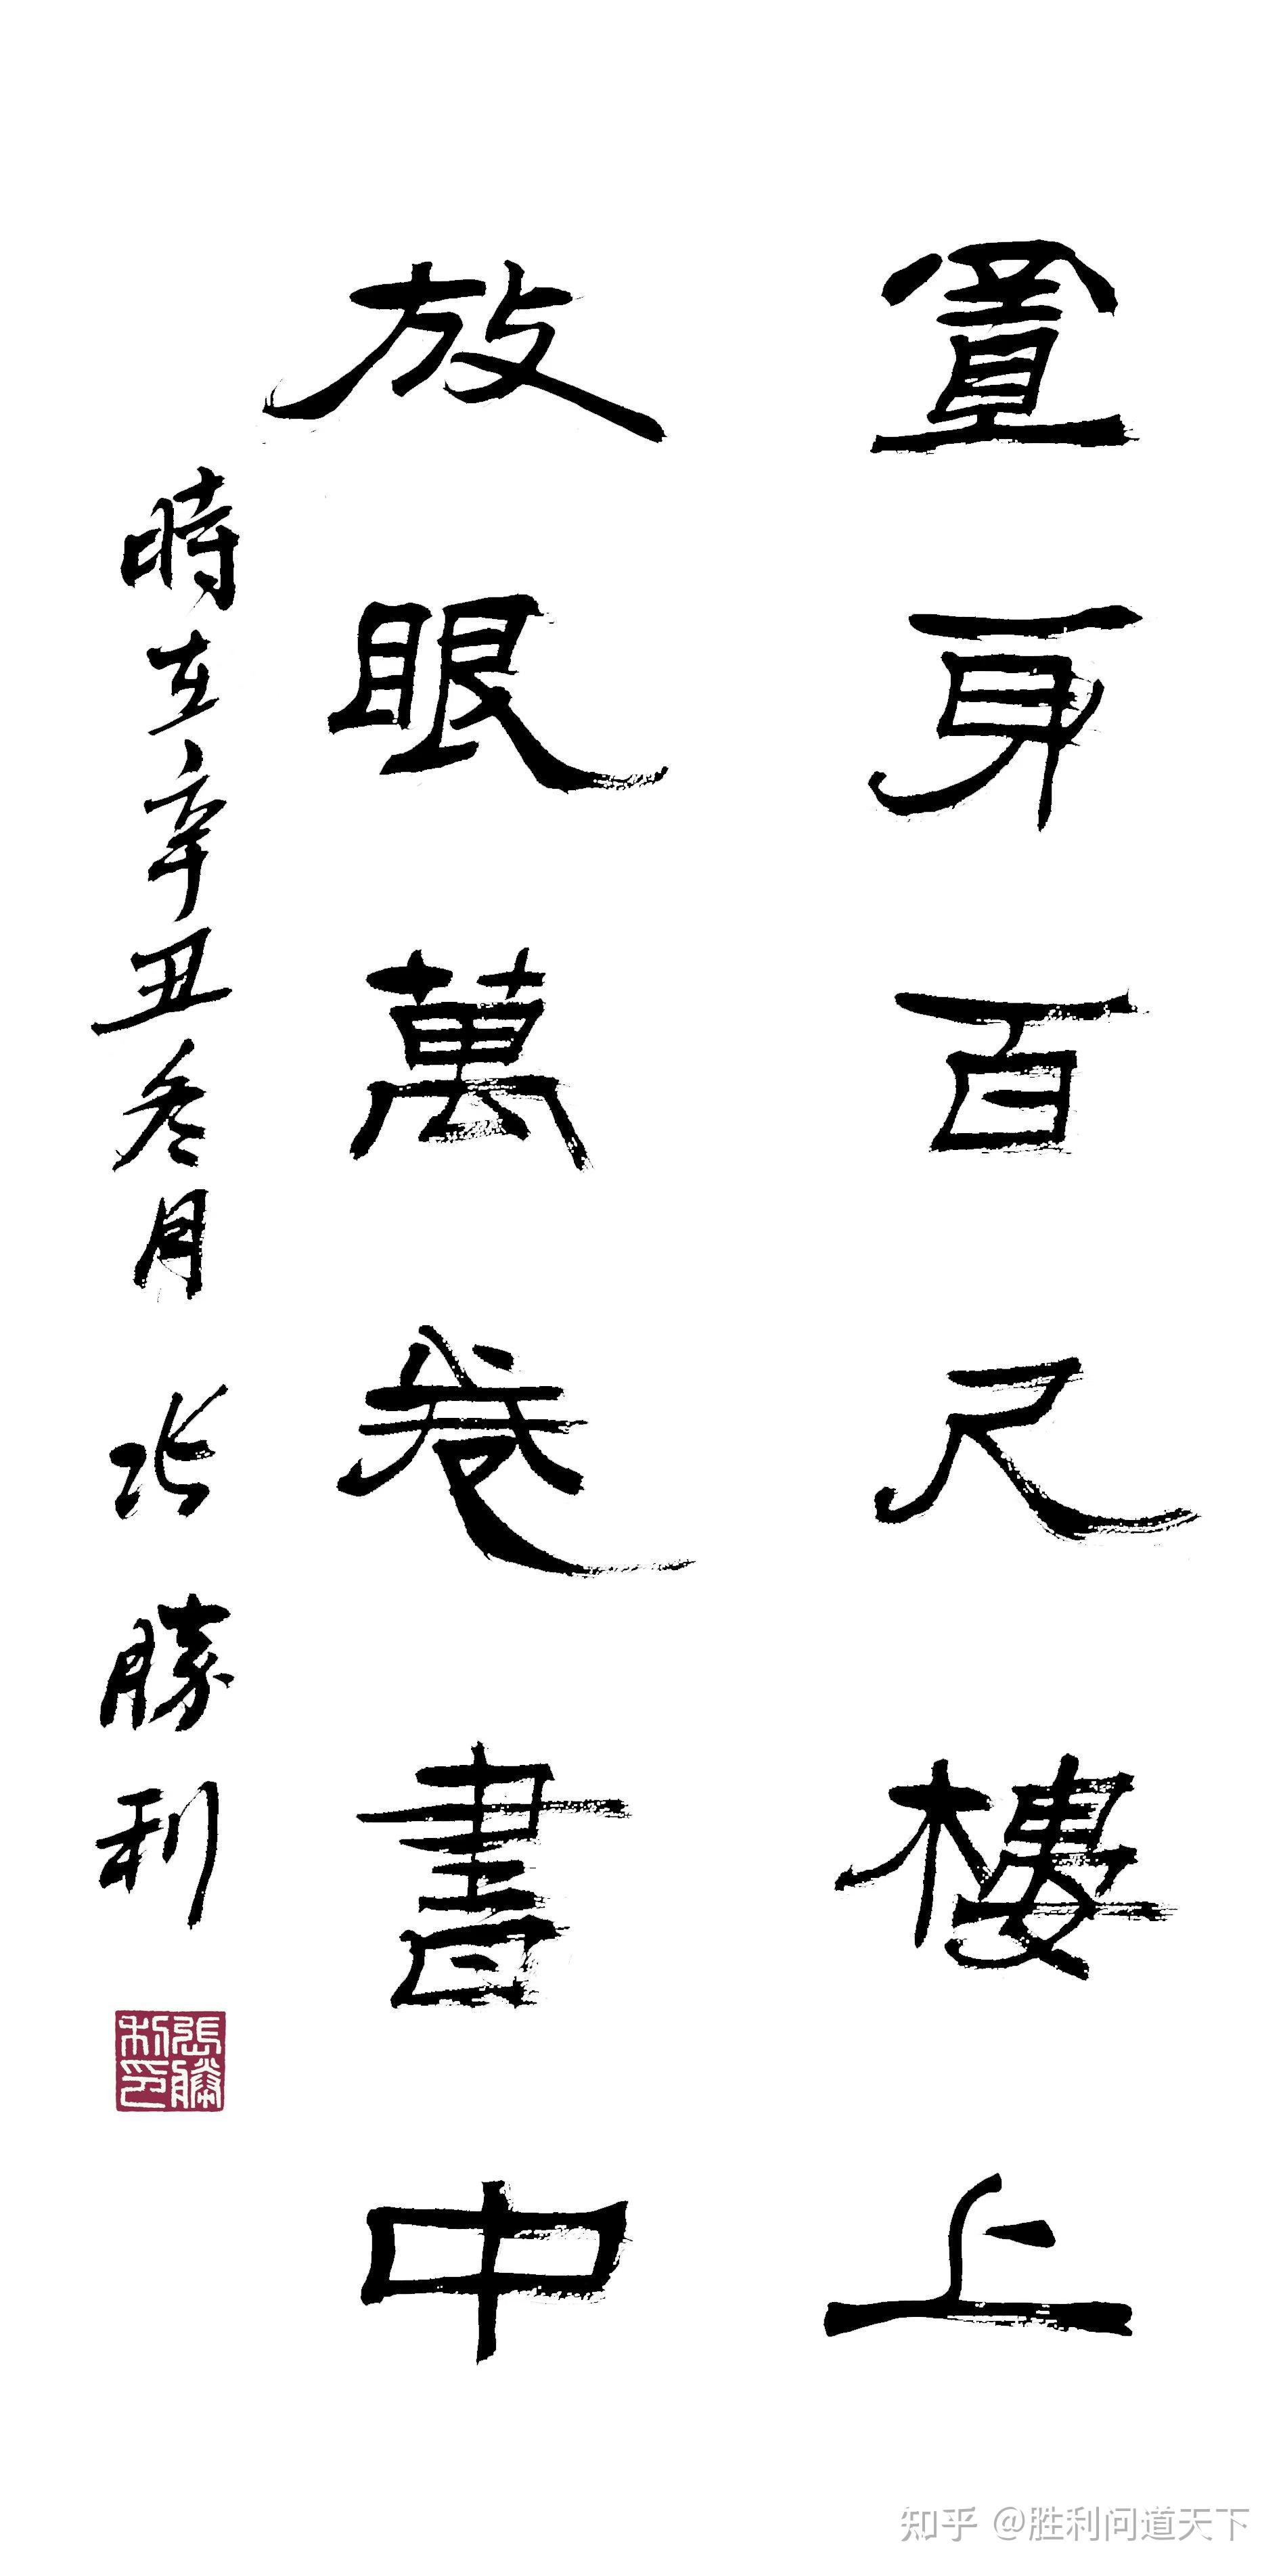 置身百尺樓上
放眼萬卷書中
時在辛丑冬月 张勝利
張勝利印
知乎 @胜利问道天下